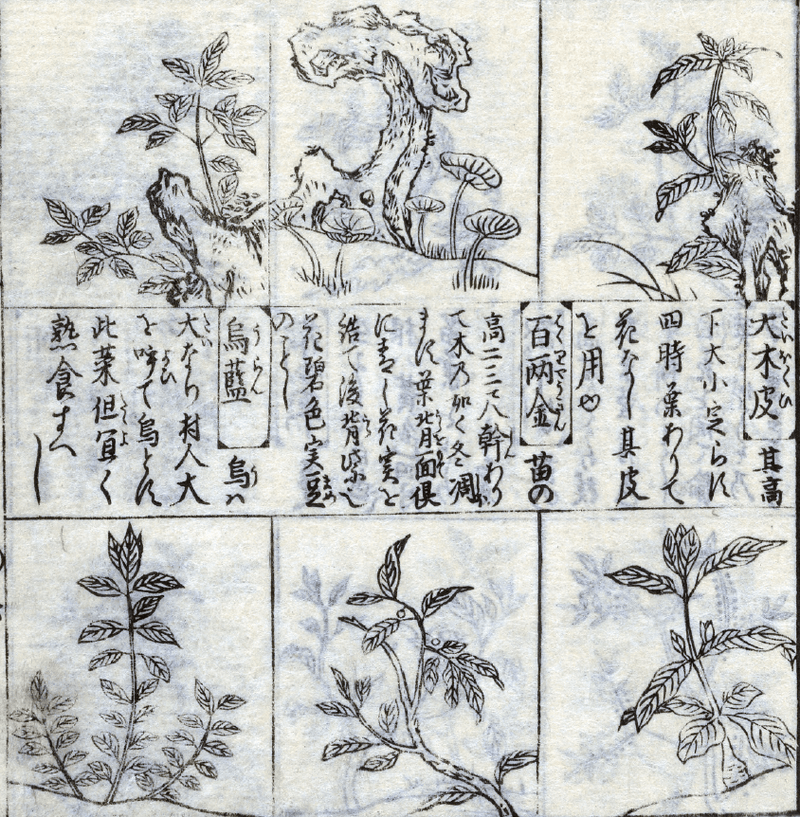 大木皮 其高
下大小定らす
四時葉ありて
花なし其皮
を用ゆ
百两金 苗の
高二三尺幹あり
て木乃如く冬凋
ます葉背面倶
に青し花実を
結て後背紫也
花碧色実豆
のことし
烏藍 烏ハ
大なり村人大
を呼て烏とす
此菜但宜く
熟食すへし